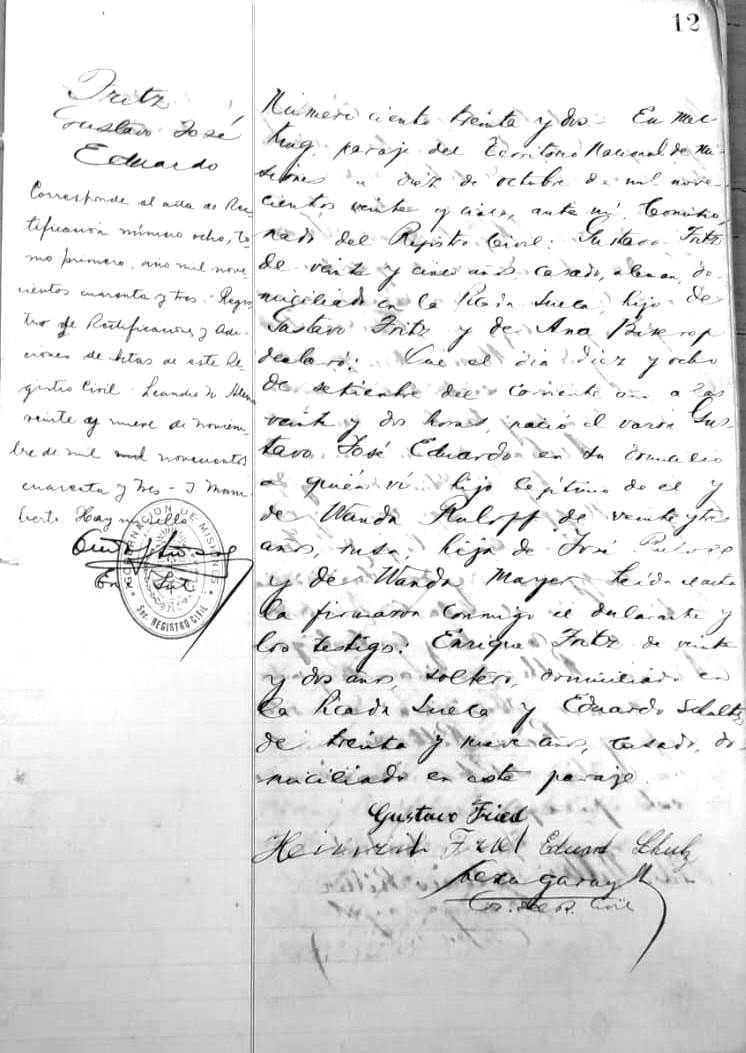 12
Fritz
Gustavo José
Eduardo
Corresponde al acta de Rec-
tificación número ocho, to-
mo primero, año mil nove-
cientos cuarenta y tres. Regis-
tro de Rectificaciones y Adi-
ciones de Actas de este Re-
gistro Civil. Leandro N. Alem
veinte y nueve de noviem-
bre de mil novecientos
cuarenta y tres -
Hay un sello
GOBERNACION DE MISIONES
Sec. REGISTRO CIVIL
Número ciento treinta y dos - En Mec-
king, paraje del Territorio Nacional de Mi-
siones a diez de octubre de mil nove-
cientos veinte y cinco, ante mí, Comisio-
nado del Registro Civil: Gustavo Fritz
de veinte y cinco años, casado, aleman, do-
miciliado en la Picada Sueca, hijo de
Gustavo Fritz y de Ana
declaró: Que el día diez y ocho
de setiembre del corriente año a las
veinte y dos horas, nació el varon Gus-
tavo José Eduardo en su domicilio
a quién ví hijo legítimo de el y
de Wanda Ruloff de veinte y tres
años, rusa, hija de José Ruloff
y de Wanda Mayer. Leida el acta
la firmaron conmigo el declarante y
los testigos: Enrique Fritz de veinte
y dos años, soltero, domiciliado en
la Picada Sueca y Eduardo Schultz
de treinta y nueve años, casado, do
miciliado en este paraje.
Gustavo Fried
Heinrich Eduard Schulz
Garay
Civil